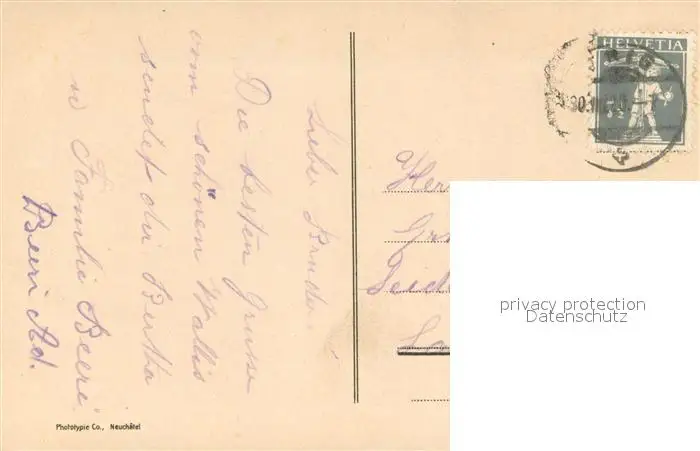 Lieber Bruder
Die besten Grüsse
vom schönen Wallis
sendet dir Bertha
Familie Beeri
Beeri Ad.
Phototypie Co., Neuchâtel
HELVETIA
Her
privacy protection
Datenschutz